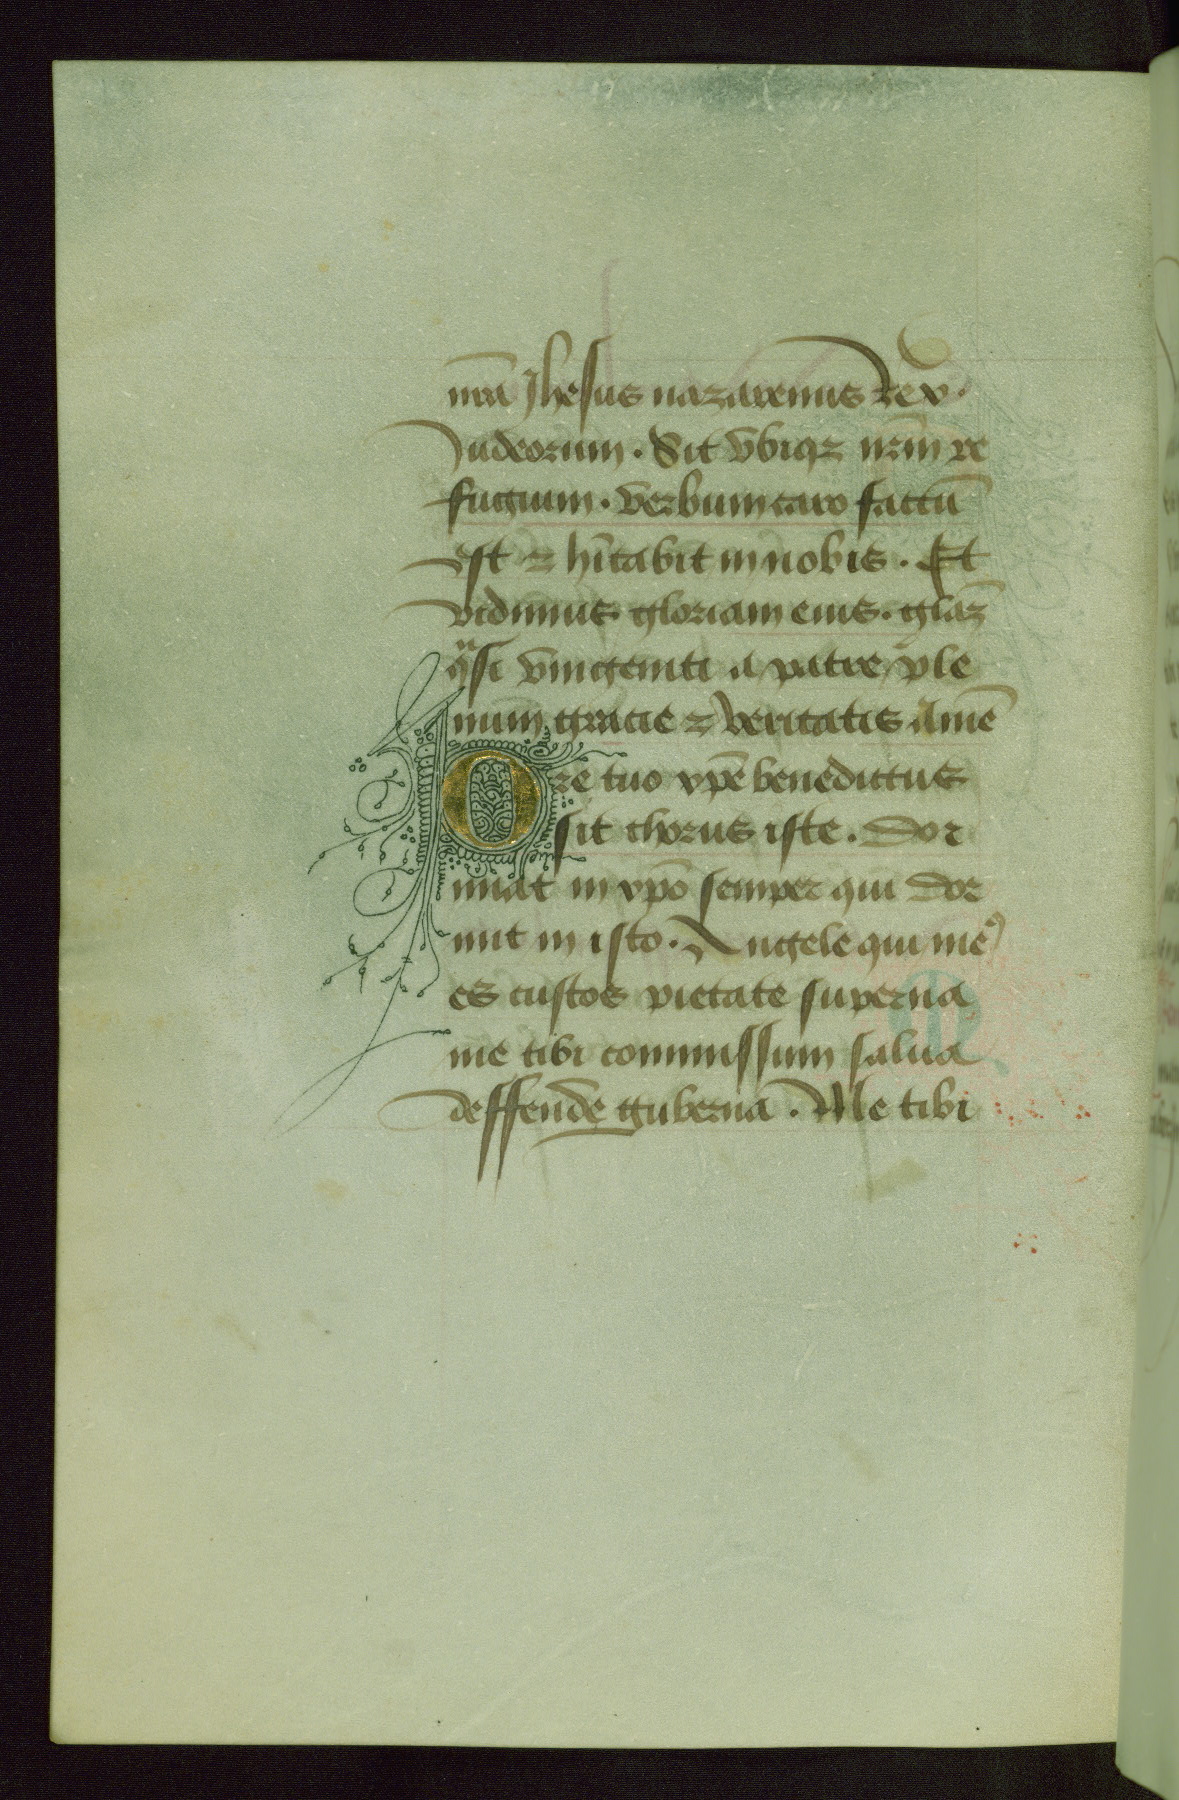 nrā Jhesus nazarenus Rex.
Judeorum. Sit vbiqꝫ nrm̄ re
fugium. Verbum caro factū
est ⁊ hītabit in nobis. Et
vidimus gloriam eius. glāz
qͣsi vnigeniti a patre ple
num gracie ⁊ veritatis Amē
Ore tuo xp̄e benedictus
sit thorus iste. Dor
miat in xp̄o semper qui dor
mit in isto. Angele qui meꝰ
es custos pietate superna
me tibi commissum salua
deffende guberna. Me tibi